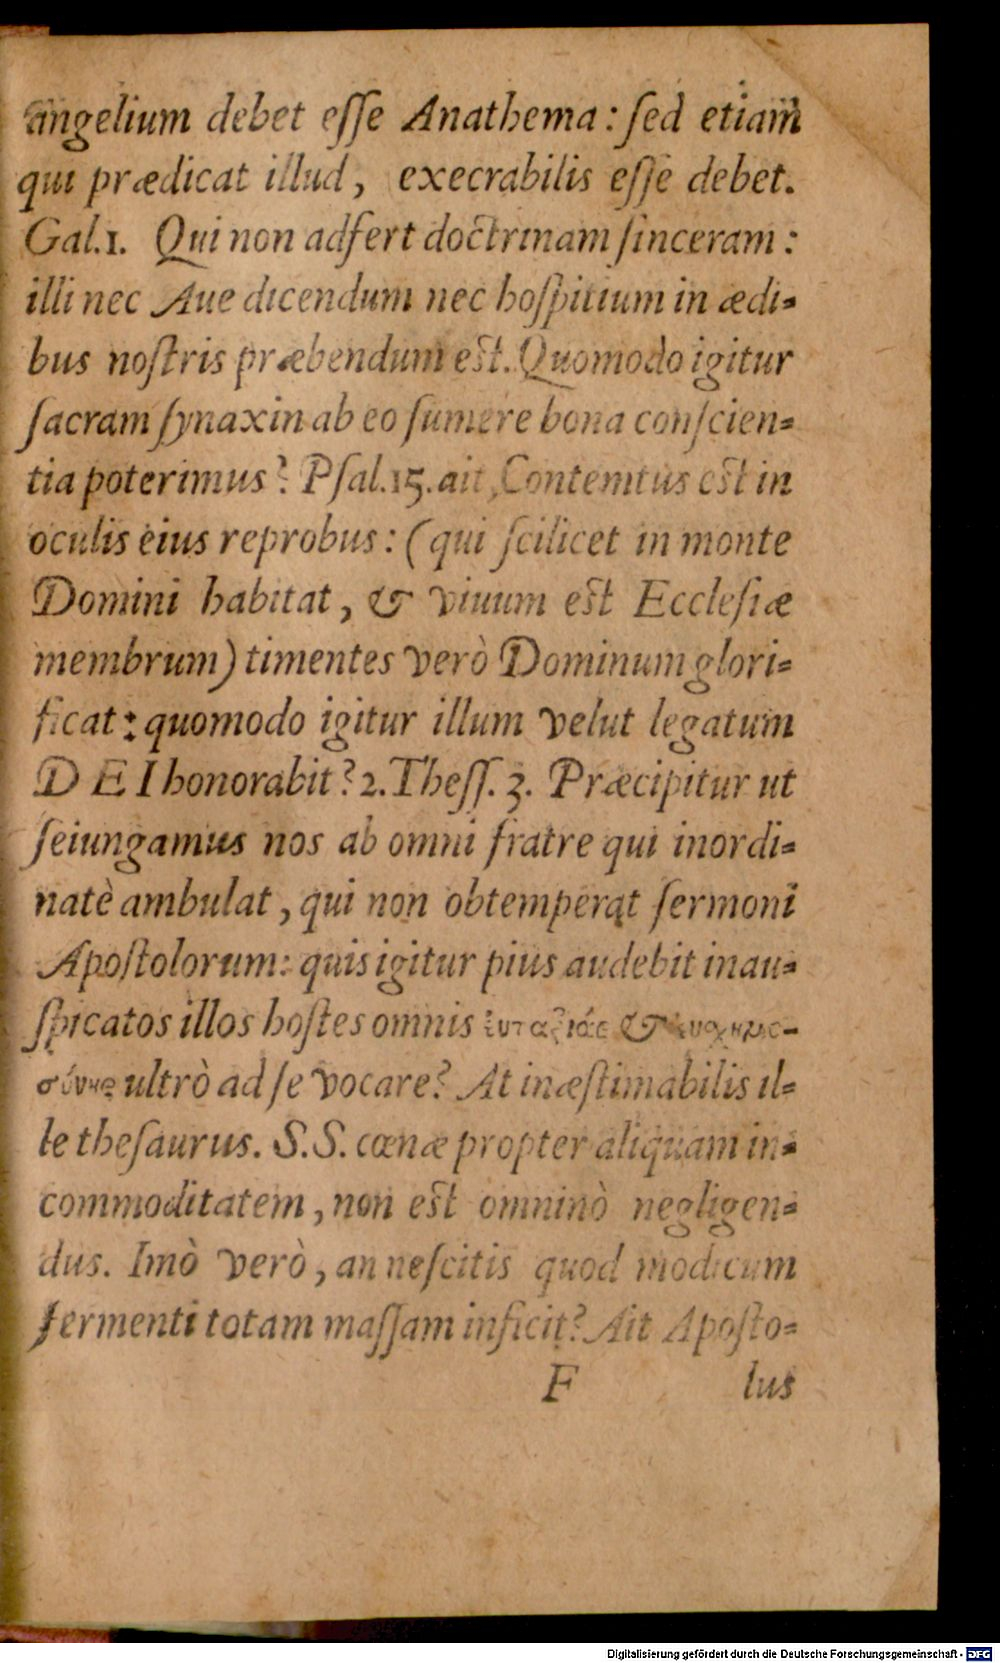 angelium debet eſſe Anathema: ſed etiam
qui prædicat illud, execrabilis eſſe debet.
Gal.1. Qui non adfert doctrinam ſinceram:
illi nec Aue dicendum nec hoſpitium in ædi-
bus noſtris præbendum est. Quomodo igitur
ſacram ſynaxin ab eo ſumere bona conſcien-
tia poterimus? Pſal.15. ait, Contemtus est in
oculis eius reprobus: (qui ſcilicet in monte
Domini habitat, & viuum est Eccleſiæ
membrum) timentes verò Dominum glori-
ficat: quomodo igitur illum velut legatum
DEI honorabit? 2. Theſſ. 3. Præcipitur ut
ſeiungamus nos ab omni fratre qui inordi-
natè ambulat, qui non obtemperat ſermoni
Apoſtolorum: quis igitur pius audebit inau-
ſpicatos illos hoſtes omnis ἐυταξίας &
ultrò ad ſe vocare? At inæſtimabilis il-
le theſaurus. S.S. cœnæ propter aliquam in-
commoditatem, non est omninò negligen-
dus. Imò verò, an neſcitis quod modicum
fermenti totam maſſam inficit? Ait Apoſto-
F lus
Digitalisierung gefördert durch die Deutsche Forschungsgemeinschaft - DFG